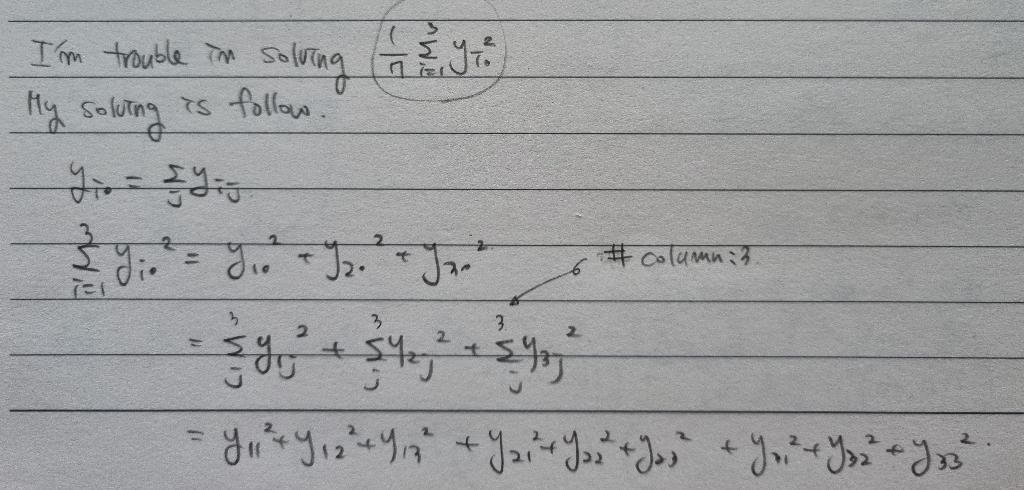 I'm trouble in solving 1/n Σ_{i=1}^{3} y_{i•}²
My solving is follow.
y_{i•} = Σ_j y_{ij}
Σ_{i=1}^{3} y_{i•}² = y_{1•}² + y_{2•}² + y_{3•}² # column : 3
= Σ_j^3 y_{1j}² + Σ_j^3 y_{2j}² + Σ_j^3 y_{3j}²
= y_{11}² + y_{12}² + y_{13}² + y_{21}² + y_{22}² + y_{23}² + y_{31}² + y_{32}² + y_{33}².